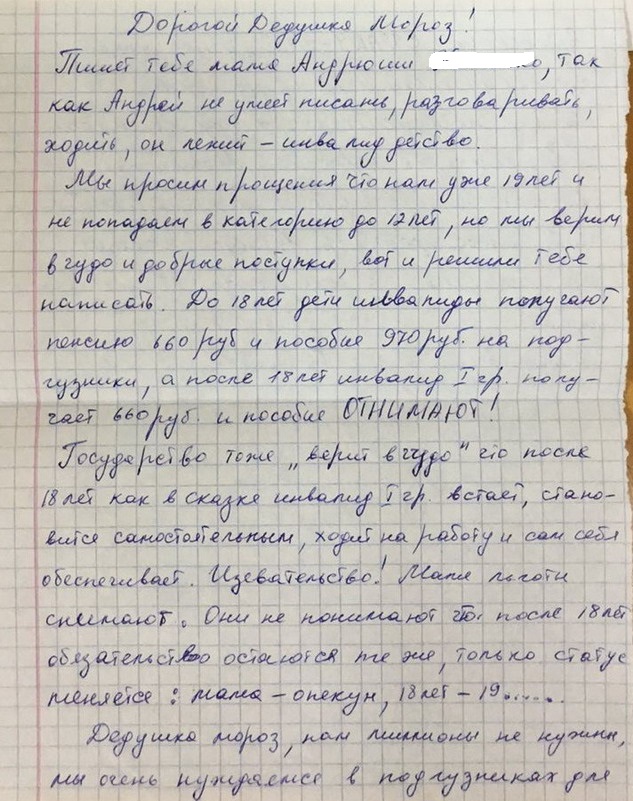 Дорогой Дедушка Мороз!
Пишет тебе мама Андрюши о, так
как Андрей не умеет писать, разговаривать,
ходить, он лежит – инвалид детство.
Мы просим прощения что нам уже 19 лет и
не попадаем в категорию до 12 лет, но мы верим
в чудо и добрые поступки, вот и решили тебе
написать. До 18 лет дети инввалиды получают
пенсию 660 руб и пособие 970 руб. на под-
гузники, а после 18 лет инвалид I гр. полу-
чает 660 руб. и пособие ОТНИМАЮТ!
Государство тоже „верит в чудо" что после
18 лет как в сказке инвалид I гр. встает, стано-
вится самостоятельным, ходит на работу и сам себя
обеспечивает. Изевательство! Маме льготы
снимают. Они не понимают что после 18 лет
обязательство остаются те же, только статус
меняется: мама – опекун, 18 лет – 19......
Дедушка мороз, нам миллионы не нужны,
мы очень нуждаемся в подгузниках для